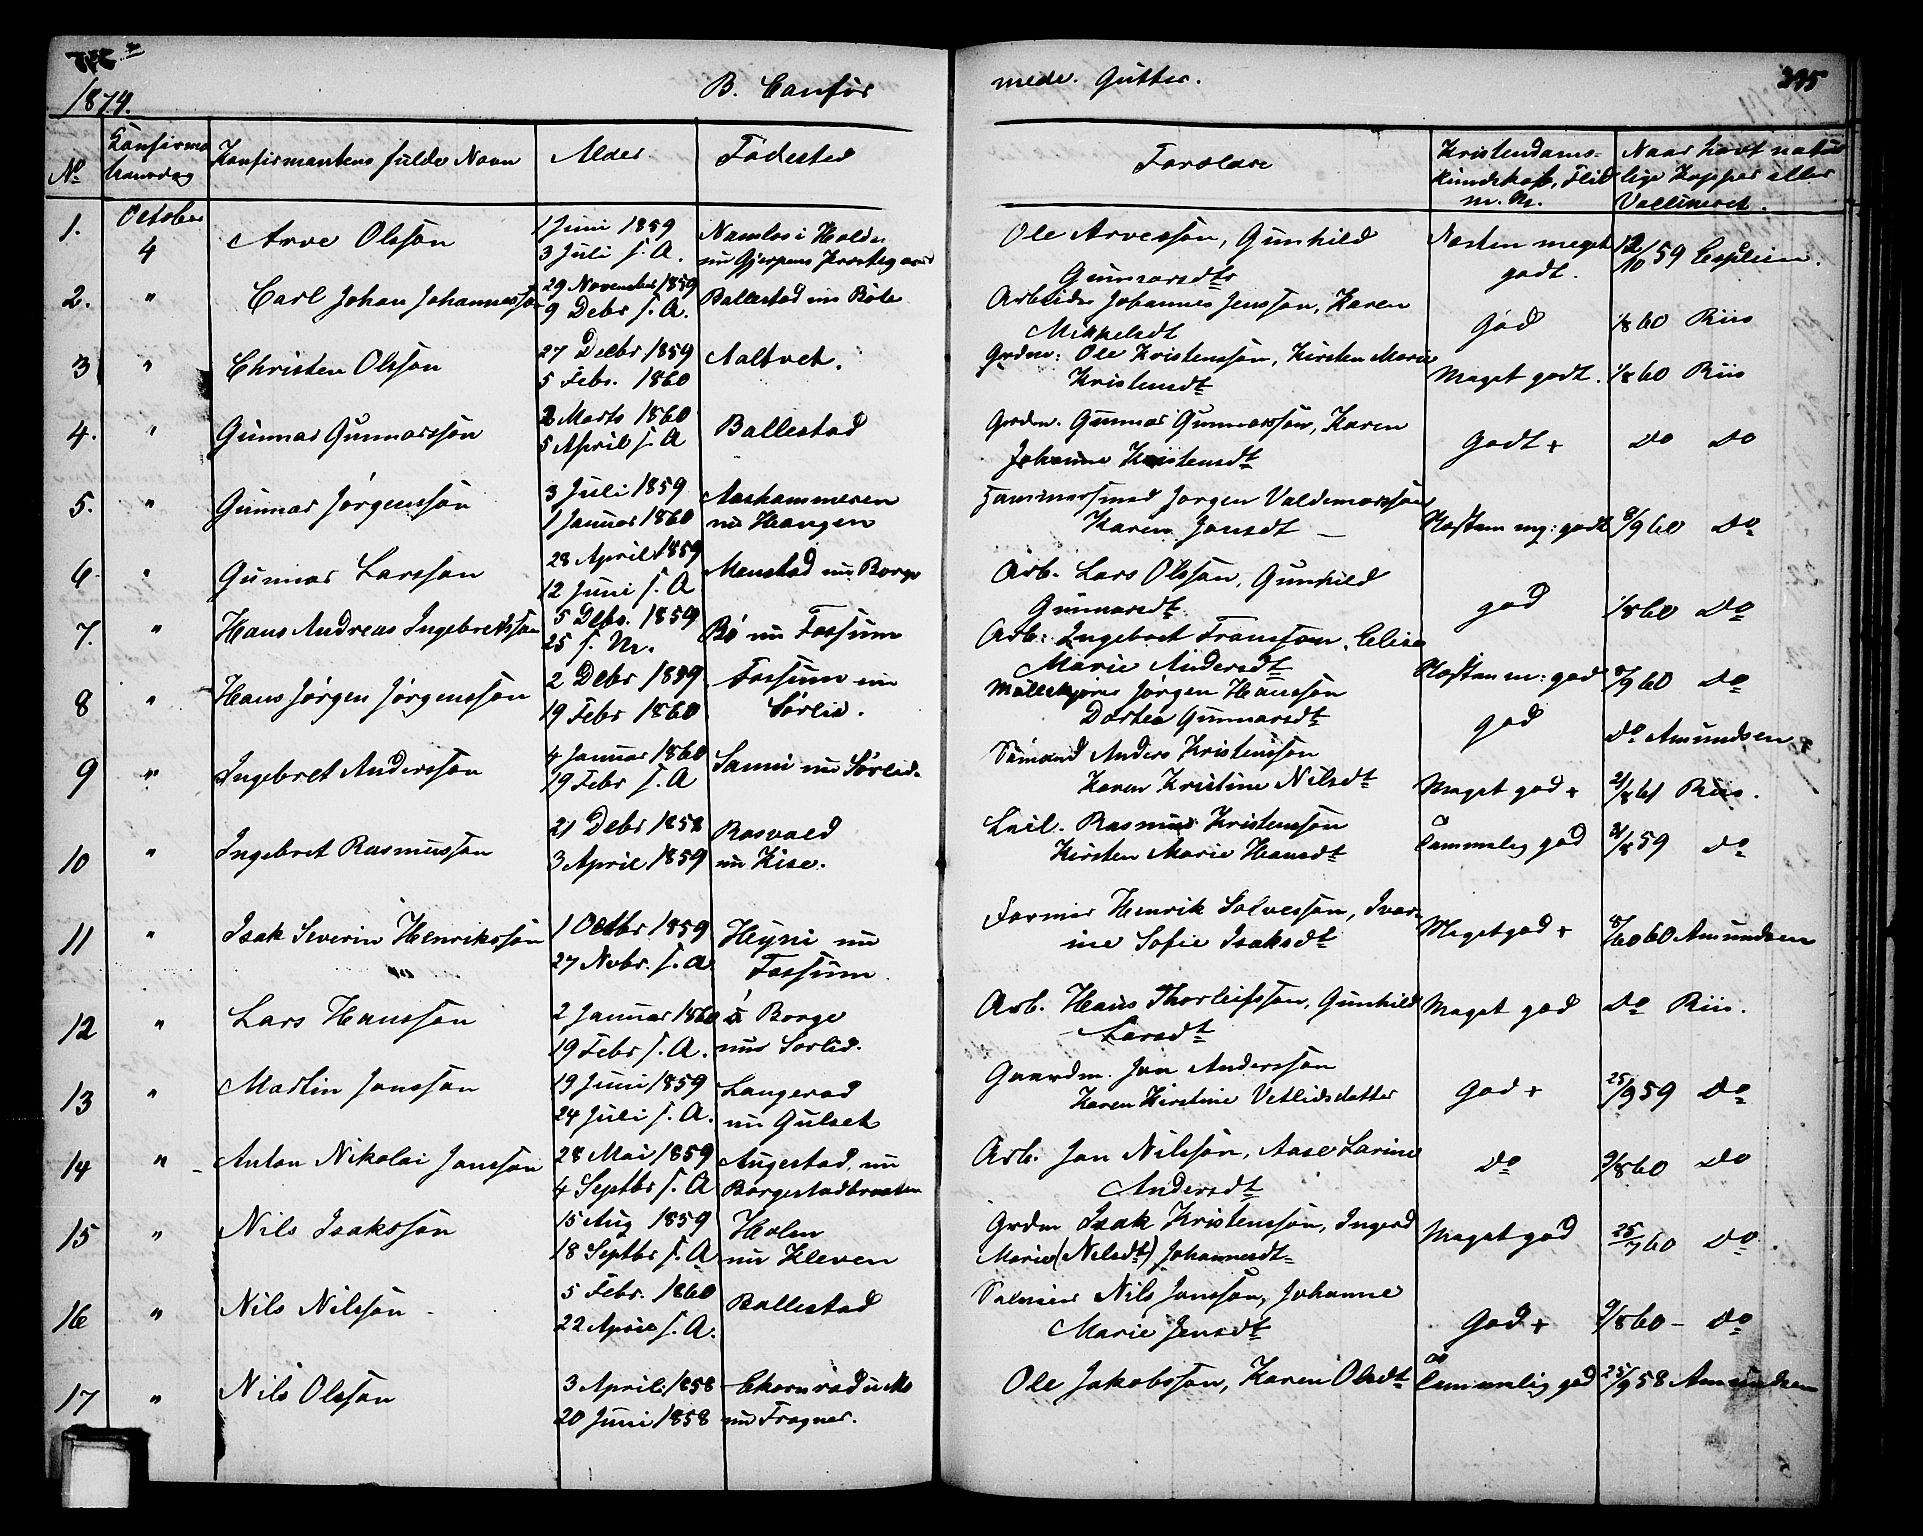 1874.
B. Confir
mede. Gutter.
395
No
Konfirma
tionsdag
Konfirmantens fulde Navn
Alder.
Fødested
Forældre
Kristendoms-
kundskab, Flid
m. M.
Naar havt natur
lige Kopper eller
Vaccineret.
1.
October
4
Arve Olsson
1 Juni 1859
3 Juli s. A.
Namløs i Holden
nu Gjerpens Præstegaard
Ole Arvesson, Gunhild
Gunnarsdtr
Næsten meget
godt.
12/10 59 Esplin.
2.
"
Carl Johan Johannesson
29 November 1859
9 Debr s. A.
Ballestad nu Bøle
Arbeider Johannes Jensson, Karen
Mikkelsdt
God
1/8 60 Riis
3
"
Christen Olsson
27 Decbr 1859
5 Febr. 1860
Aaltvet.
Grdm: Ole Kristensson, Kirsten Marie
Kristensdt
Meget godt.
1/8 60 Riis
4.
"
Gunnar Gunnarsson
2 Marts 1860
5 April s. A
Ballestad
Grdm. Gunnar Gunnarsson, Karen
Johanne Kristensdt
Godt +
Do Do
5.
"
Gunnar Jørgensson
3 Juli 1859
1 Januar 1860
Aashammeren
nu Haugen
Hammersmed Jørgen Valdemarsson
Karen Jansdt
Næsten mg: godt
8/9 60 Do
6
"
Gunnar Larsson
28 April 1859
12 Juni s. A
Menstad nu Borge
Arb. Lars Olsson, Gunhild
Gunnarsdt
god
1/8 60 Do
7.
"
Hans Andreas Ingebretsson
5 Debr. 1859
25 s. M.
Bø nu Fossum
Arb: Ingebret Fransson, Elise
Marie Andersdt
Næsten m: god
8/9 60 Do
8
"
Hans Jørgen Jørgensson
2 Debr 1859
19 Febr 1860
Fossum nu
Sørlid.
Jørgen Hansson
Dortea Gunnarsdt
god
Do Amundsen
9
"
Ingebret Andersson
4 Januar 1860
19 Febr s. A
Sanni nu Sørlid.
Sømand Anders Kristensson
Karen Kristine Nilsdt
Meget god +
21/8 61 Riis.
10
"
Ingebret Rasmussøn
21 Debr 1858
3 April 1859
Rosvald
nu Kise.
Leil. Rasmus Kristensson
Kirsten Marie Hansdt
Temmelig god
21/8 59 Do
11
"
Isak Severin Henriksson
1 Octbr 1859
27 Novbr. s. A
Heyni nu
Fossum
Former Henrik Solvesson, Ivar-
ine Sofie Isaksdt
Meget god +
60 Amundsen
12
"
Lars Hansson
2 Januar 1860
19 Febr s. A.
ú Borge
nu Sørlid.
Arb. Hans Thorleifsson, Gunhild
Larsdt
Meget god
Do Riis.
13
"
Martin Jonsson
19 Juni 1859
24 Juli s. A.
Langerød
nu Gulset
Gaardm. Jon Andersson
Karen Kirstine Vetlidsdatter
God +
25/9 59 Do
14
"
Anton Nikolai Jansson
28 Mai 1859
4 Septbr s. A
Augestad, nu
Borgestadbraaten
Arb. Jan Nilsson, Aase Larine
Andersdt
Do
9/8 60 Do
15
"
Nils Isaksson
15 Aug 1859
18 Septbr s. A
Holen
nu Kleven
Grdm Isak Kristensson, Ingerd
Marie (Nilsdt) Johannesdt
Meget god
25/7 60 Do.
16
"
Nils Nilsson
5 Febr. 1860
22 April s. A.
Ballestad
Nils Jansson, Johanne
Marie Jensdt
God +
9/8 60 - Do
17
"
Nils Olsson
3 April 1858
20 Juni 1858
Ekornrød u Mo
nu Frogner.
Ole Jakobsson, Karen Olsdt
Temmelig god
25/9 58 Amundsen